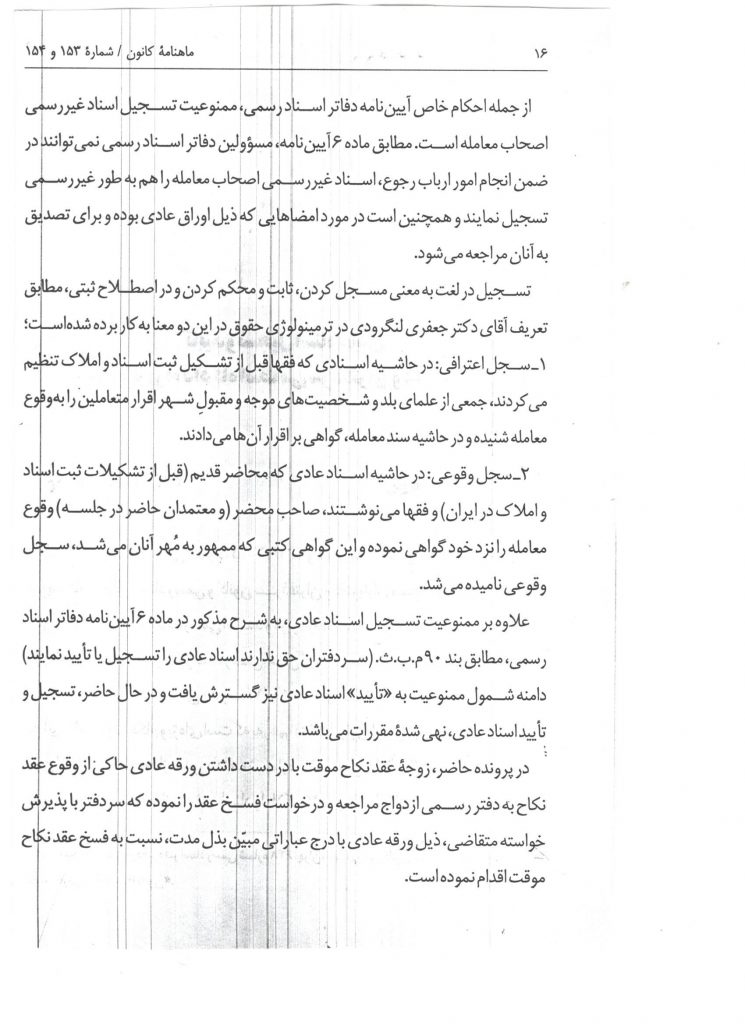 ۱۶
ماهنامهٔ کانون / شمارهٔ ۱۵۳ و ۱۵۴
از جمله احکام خاص آیین‌نامه دفاتر اسناد رسمی، ممنوعیت تسجیل اسناد غیررسمی
اصحاب معامله است. مطابق ماده ۶ آیین‌نامه، مسؤولین دفاتر اسناد رسمی نمی‌توانند در
ضمن انجام امور ارباب رجوع، اسناد غیررسمی اصحاب معامله را هم به طور غیررسمی
تسجیل نمایند و همچنین است در مورد امضاهایی که ذیل اوراق عادی بوده و برای تصدیق
به آنان مراجعه می‌شود.
تسجیل در لغت به معنی مسجل کردن، ثابت و محکم کردن و در اصطلاح ثبتی، مطابق
تعریف آقای دکتر جعفری لنگرودی در ترمینولوژی حقوق در این دو معنا به کار برده شده‌است؛
۱ـ سجل اعترافی: در حاشیه اسنادی که فقها قبل از تشکیل ثبت اسناد و املاک تنظیم
می‌کردند، جمعی از علمای بلد و شخصیت‌های موجه و مقبولِ شهر اقرار متعاملین را به‌وقوع
معامله شنیده و در حاشیه سند معامله، گواهی بر اقرار آن‌ها می‌دادند.
۲ـ سجل وقوعی: در حاشیه اسناد عادی که محاضر قدیم (قبل از تشکیلات ثبت اسناد
و املاک در ایران) و فقها می‌نوشتند، صاحب محضر (و معتمدان حاضر در جلسه) وقوع
معامله را نزد خود گواهی نموده و این گواهی کتبی که ممهور به مُهر آنان می‌شد، سجل
وقوعی نامیده می‌شد.
علاوه بر ممنوعیت تسجیل اسناد عادی، به شرح مذکور در ماده ۶ آیین‌نامه دفاتر اسناد
رسمی، مطابق بند ۹۰ م.ب.ث. (سردفتران حق ندارند اسناد عادی را تسجیل یا تأیید نمایند)
دامنه شمول ممنوعیت به «تأیید» اسناد عادی نیز گسترش یافت و در حال حاضر، تسجیل و
تأیید اسناد عادی، نهی شدهٔ مقررات می‌باشد.
در پرونده حاضر، زوجهٔ عقد نکاح موقت با در دست داشتن ورقه عادی حاکی از وقوع عقد
نکاح به دفتر رسمی ازدواج مراجعه و درخواست فسخ عقد را نموده که سردفتر با پذیرش
خواسته متقاضی، ذیل ورقه عادی با درج عباراتی مبیّن بذل مدت، نسبت به فسخ عقد نکاح
موقت اقدام نموده است.